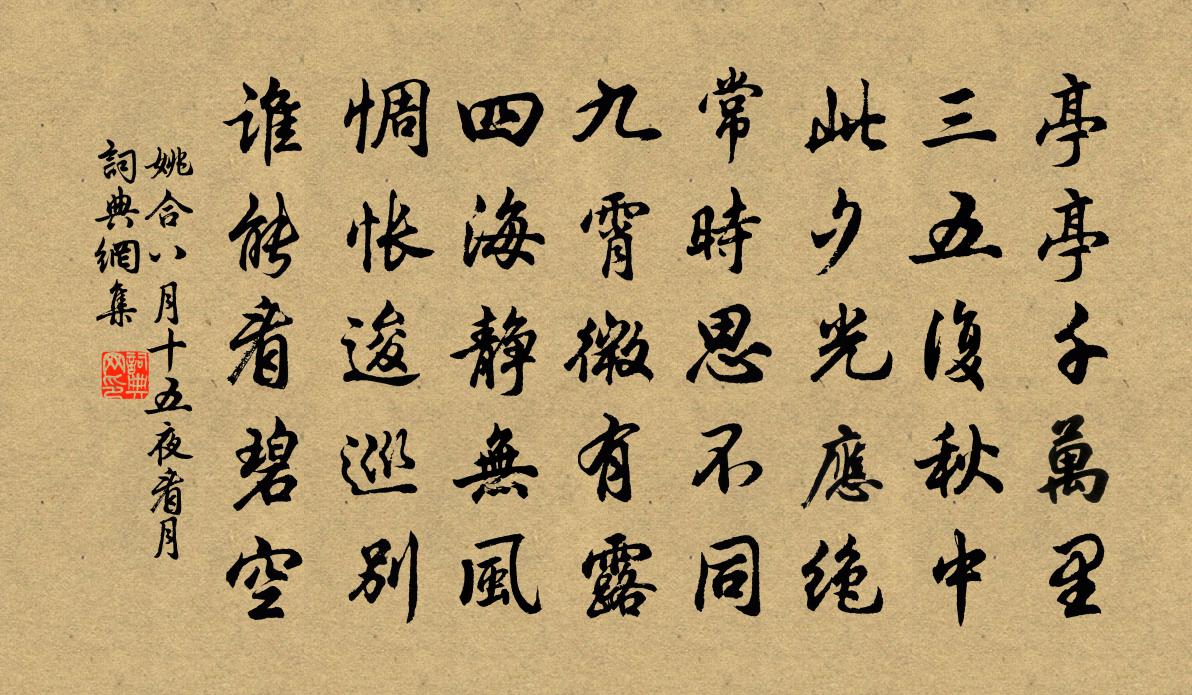 亭亭千萬里
三五復秋中
此夕光應絶
常時思不同
九霄微有露
四海静無風
惆怅逡巡别
誰能看碧空
姚合八月十五夜看月
詞典網集
詞典网印